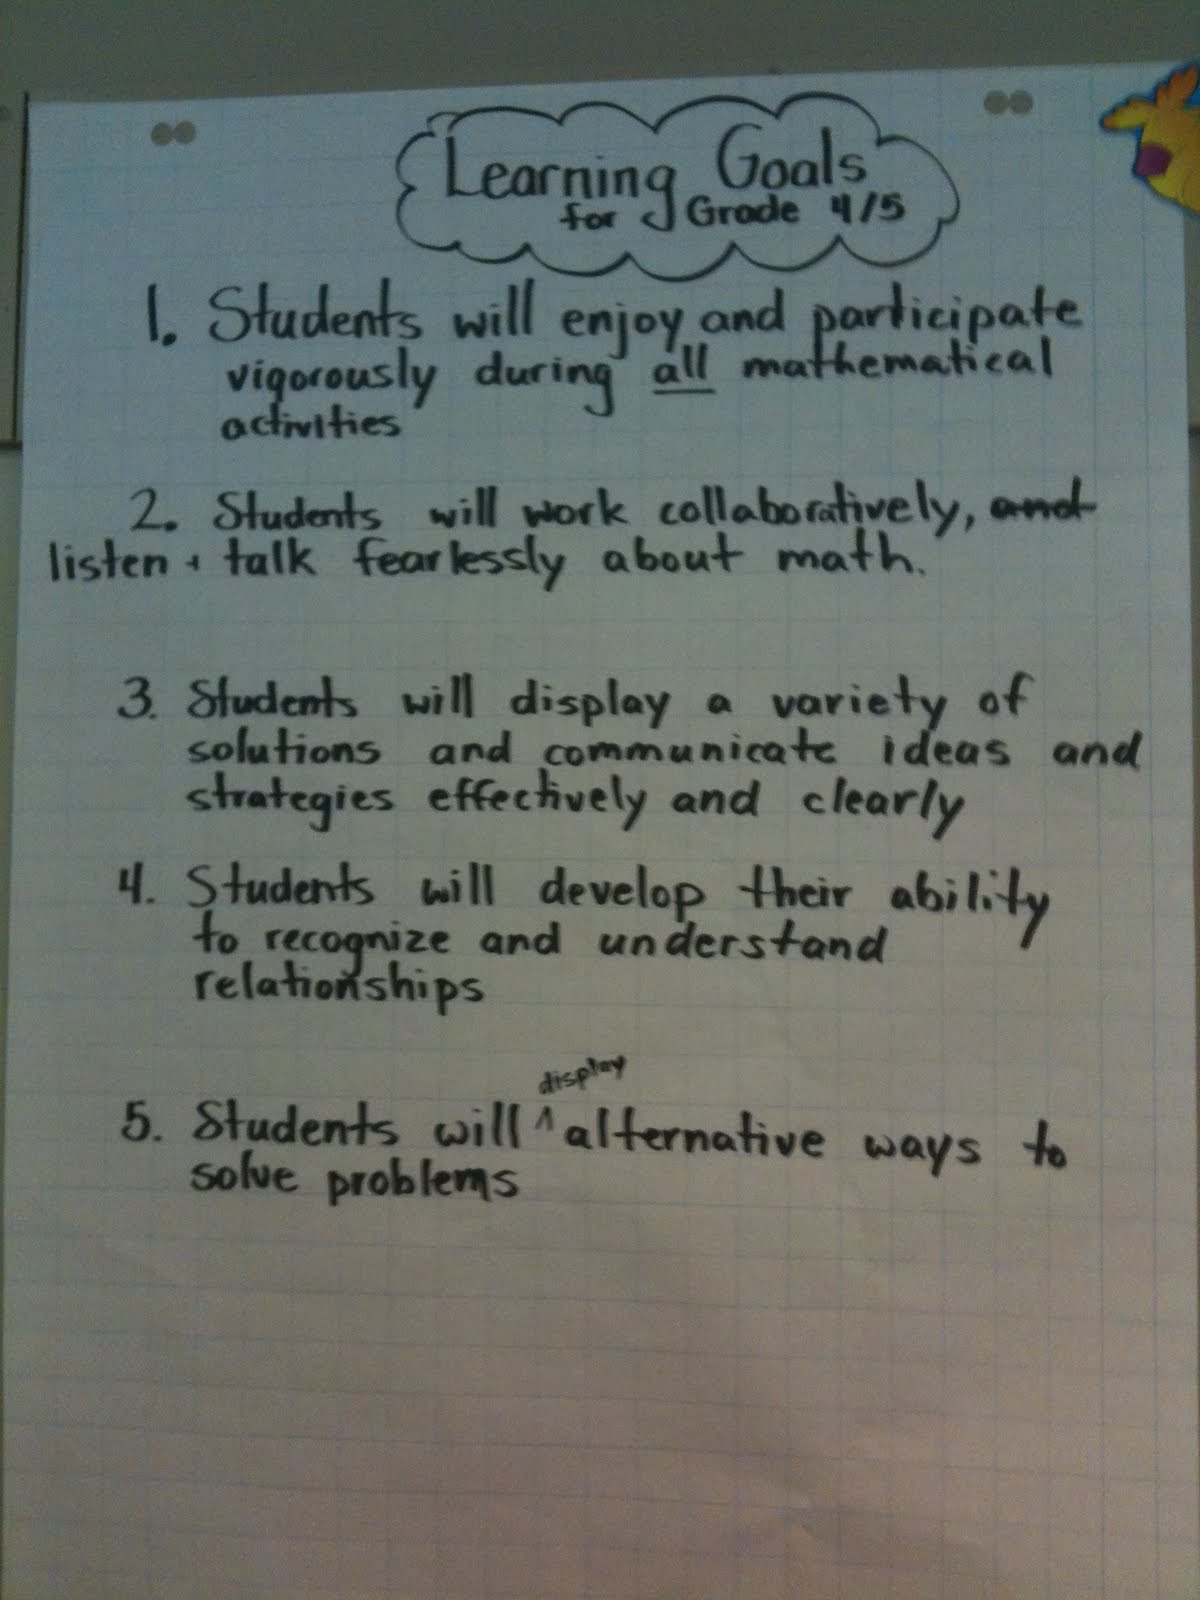 Learning Goals
for Grade 4/5
1. Students will enjoy and participate
vigorously during all mathematical
activities
2. Students will work collaboratively, and
listen + talk fearlessly about math.
3. Students will display a variety of
solutions and communicate ideas and
strategies effectively and clearly
4. Students will develop their ability
to recognize and understand
relationships
display
5. Students will ^ alternative ways to
solve problems